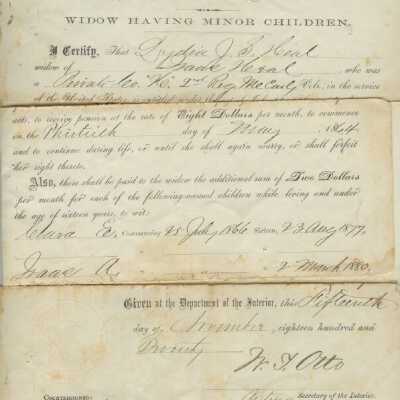 WIDOW HAVING MINOR CHILDREN.
I Certify, That Lydia J. S. Heal
widow of Isaac Heal, who was
a Private Co. "K," 2nd Reg. Me Cavly Vols., in the service
of the United
acts, to receive pension at the rate of Eight Dollars per month, to commence
on the Thirtieth day of May, 1864
and to continue during life, or until she shall again marry, or shall forfeit
her right thereto.
Also, there shall be paid to the widow the additional sum of Two Dollars
per month for each of the following-named children while living and under
the age of sixteen years, to wit:
Clara E. Commencing 25 July 1866 Ending 23 Aug 1877.
Isaac A. 2 March 1880.
Given at the Department of the Interior, this Fifteenth
day of November, eighteen hundred and
W. T. Otto
Secretary of the Interior.
COUNTERSIGNED